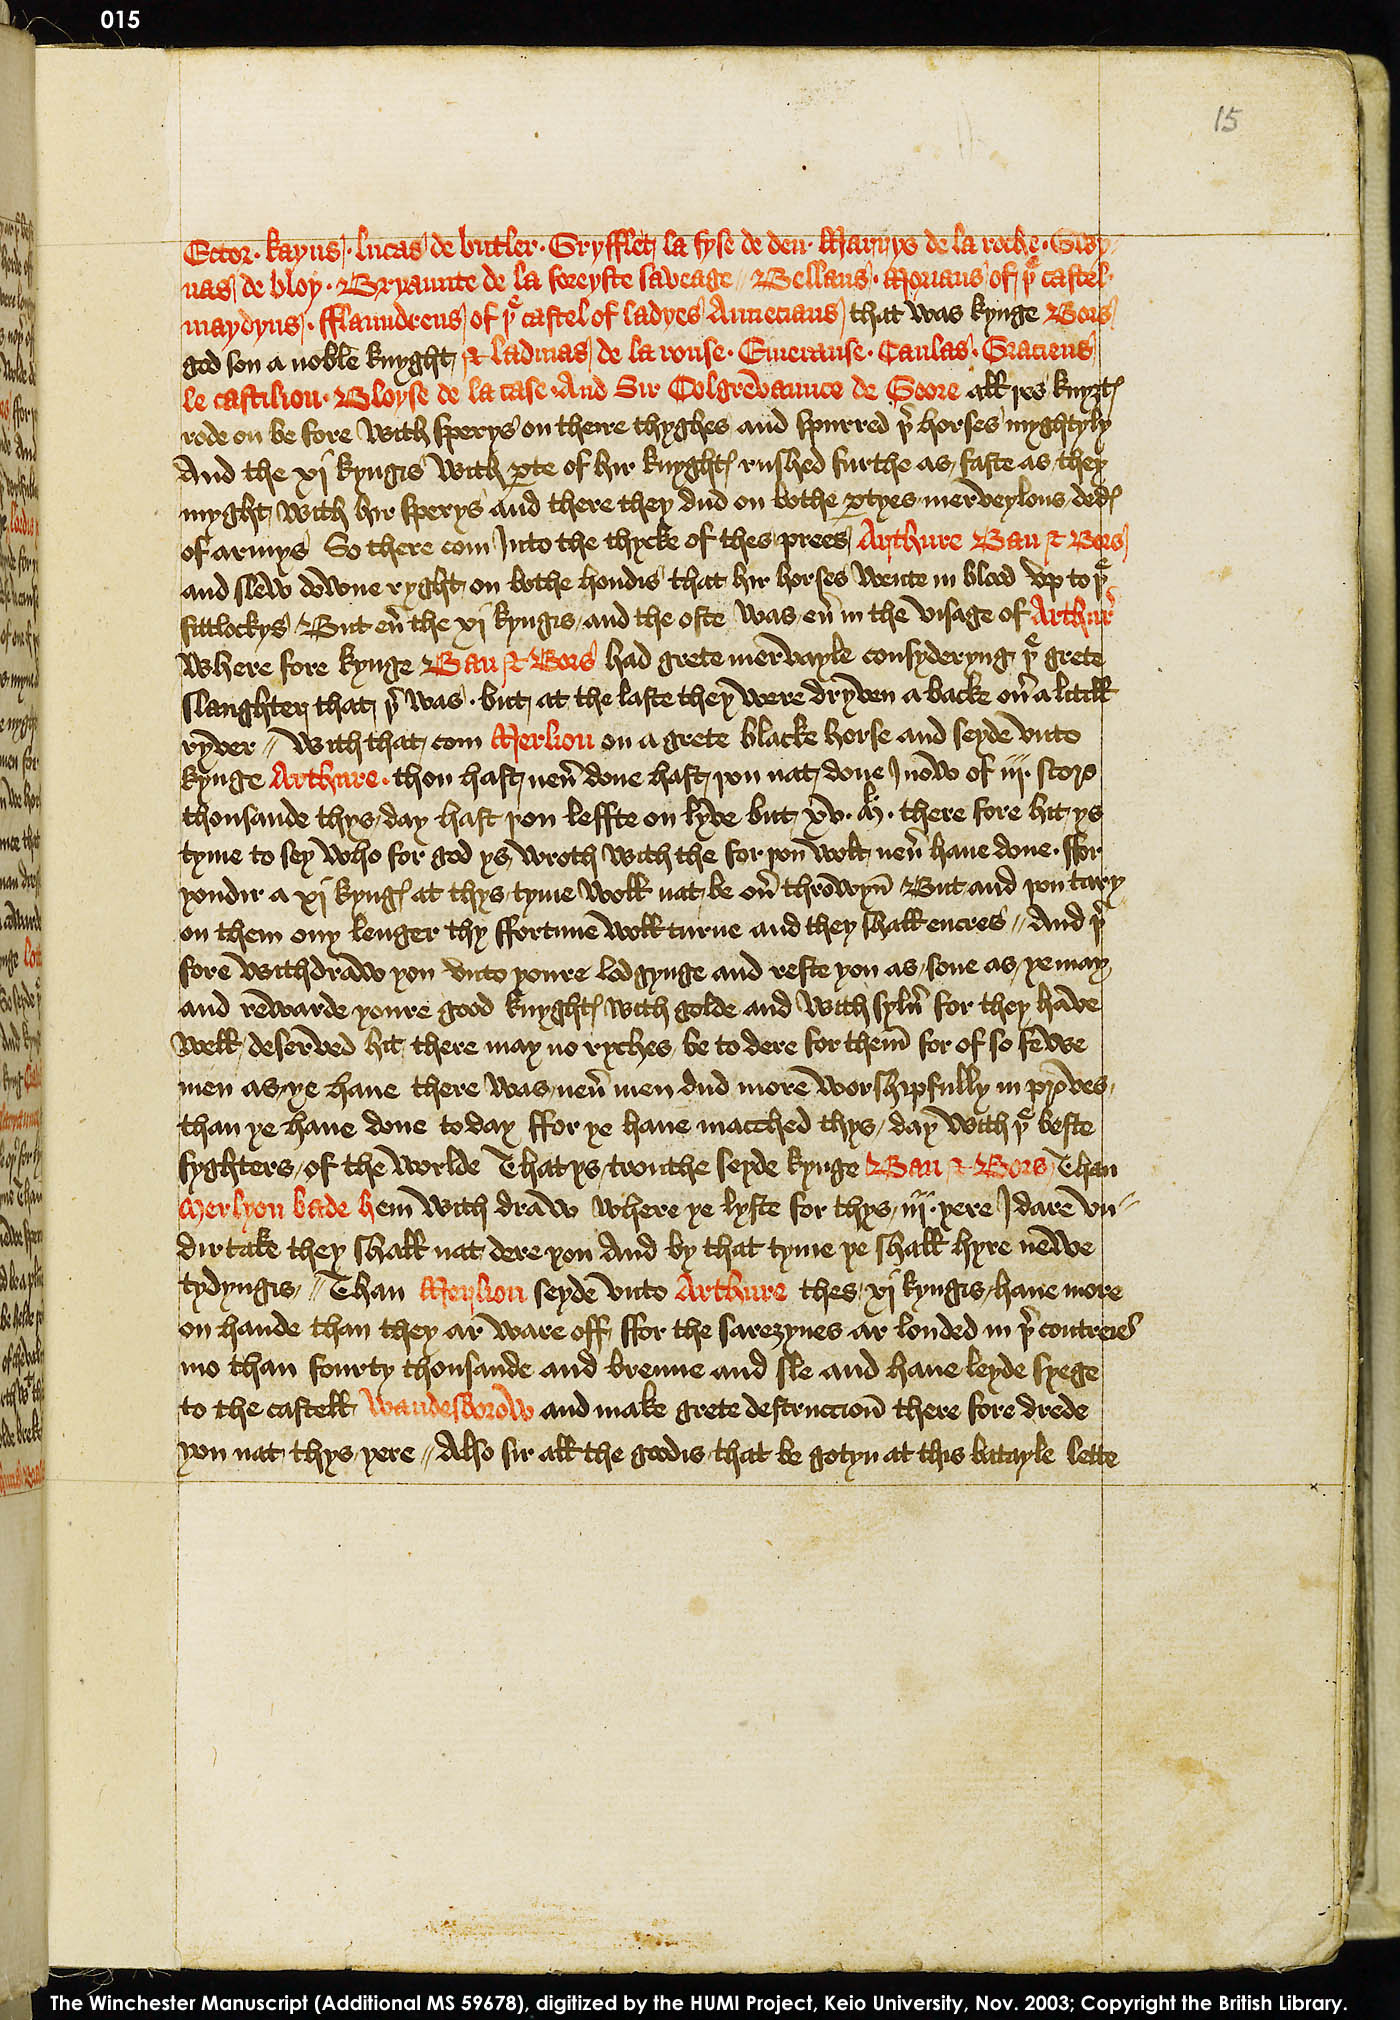 015
15
Ector · kayus · lucas de butler · Gryfflet la fyse de deu · Mariys de la roche · Gwy
nas de bloy · Bryaunte de la foreyste saveage // Bellaus · Morians of þe castel
maydyns · fflaundreus of þe castel of ladyes Annecians that was kynge Bors
god son a noble knyght & ladinas de la rouse · Emerause · Caulas · Graciens
le castilion · Bloyse de la case · And Sir Colgrevaunce de Goore all þes knyȝtꝭ
rode on be fore with sperys on theire thyghes and spurred þr horses myghtyly
And the xj kyngis with ꝑte of hir knyghtꝭ rushed furthe as faste as they
myght with hir sperys and there they dud on bothe ꝑtyes merveylous dedꝭ
of armys So there com Into the thycke of thes prees Arthure Ban & Bors
and slew downe ryght on bothe hondis that hir horses wente in blood vp to þe
fittlockys / But eu̾ the xj kyngis and the oste was eu̾ in the visage of Arthur̾
where fore kynge Ban & Bors had grete mervayle consyderyng þe grete
slaughter that þr was · but at the laste they were dryven a backe ou̾ a litill
ryver // with that com Merlion on a grete blacke horse and seyde vnto
kynge Arthure · thou hast neu̾ done hast þou nat done Inow of iij · score
thousande thys day hast þou leffte on lyve but xv · Ml · there fore hit ys
tyme to sey who for god ys wroth with the for þou wolt neu̾ haue done · ffor
yondir a xj kyngꝭ at thys tyme woll nat be ou̾ throwyn̄ But and þou tary
on them ony lenger thy ffortune woll turne and they shall encres // And þr
fore withdraw you vnto youre lodgynge and reste you as sone as ye may
and rewarde youre good knyghtꝭ with golde and with sylu̾ for they have
well deserved hit there may no ryches be to dere for them̄ for of so fewe
men as ye haue there was neu̾ men dud more worshipfully in proves
than ye haue done to day ffor ye haue macched thys day with þe beste
fyghters of the worlde That ys trouthe seyde kynge Ban & Bors Than
Merlyon bade hem with draw where ye lyste for thys iij · yere I dare vn //
dir take they shall nat dere you And by that tyme ye shall hyre newe
tydyngis // Than Merlion seyde vnto Arthure thes xj kyngis haue more
on hande than they ar ware off ffor the sarezynes ar londed in þr contreies
mo than fourty thousande and brenne and sle and haue leyde syege
to the castell Wandesborow and make grete destruccion̄ there fore drede
you nat thys yere // Also sir all the goodis that be gotyn at this batayle lette
The Winchester Manuscript (Additional MS 59678), digitized by the HUMI Project, Keio University, Nov. 2003; Copyright the British Library.